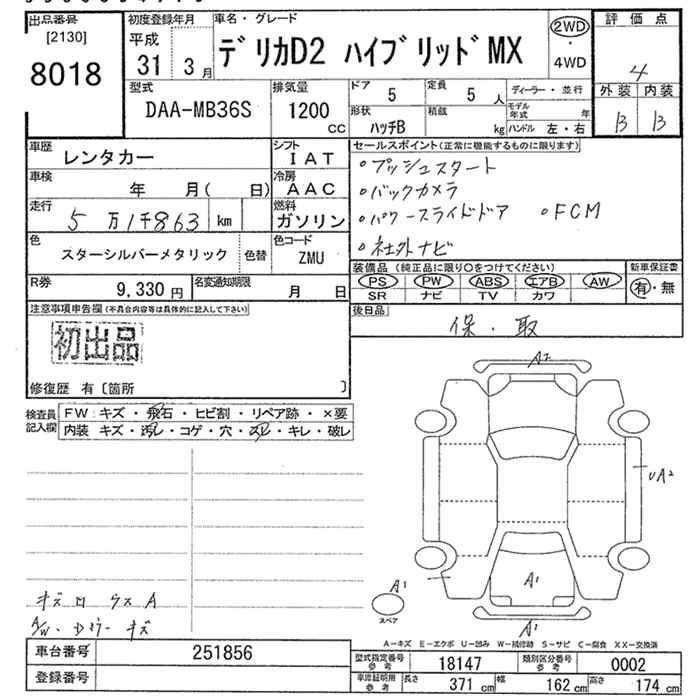 出品番号
[2130]
8018
初度登録年月
平成
31 3 月
車名・グレード
デリカD2 ハイブリッドMX
2WD
・
4WD
評価点
4
外装 内装
B B
型式
DAA-MB36S
排気量
1200
CC
ドア
5
定員
5 人
ディーラー・並行
形状
ハッチB
積載
kg
モデル年式 年
ハンドル 左・右
車歴
レンタカー
シフト
IAT
車検
年 月( 日)
冷房
AAC
走行
5万1千863 km
燃料
ガソリン
色
スターシルバーメタリック
色替
色コード
ZMU
R券
9,330 円
名変通知期限
月 日
セールスポイント(正常に機能するものに限ります)
○プッシュスタート
○バックカメラ
○パワースライドドア ○FCM
○社外ナビ
装備品 (純正品に限り○をつけてください)
PS PW ABS エアB AW
SR ナビ TV カワ
新車保証書
有・無
後日品
保・取
注意事項申告欄(不具合内容等は具体的に記入して下さい)
初出品
修復歴 有〔箇所 〕
検査員記入欄
FW:キズ・飛石・ヒビ割・リペア跡・×要
内装 キズ・汚レ・コゲ・穴・スレ・キレ・破レ
A2
UA2
A1
A1
スペア
A1
A/W
キズ
A-キズ E-エクボ U-凹み W-補修跡 S-サビ C-腐食 XX-交換済
車台番号
251856
登録番号
型式指定番号
参考
18147
類別区分番号
参考
0002
車庫証明用
参考
長さ 371 cm 幅 162 cm 高さ 174 cm